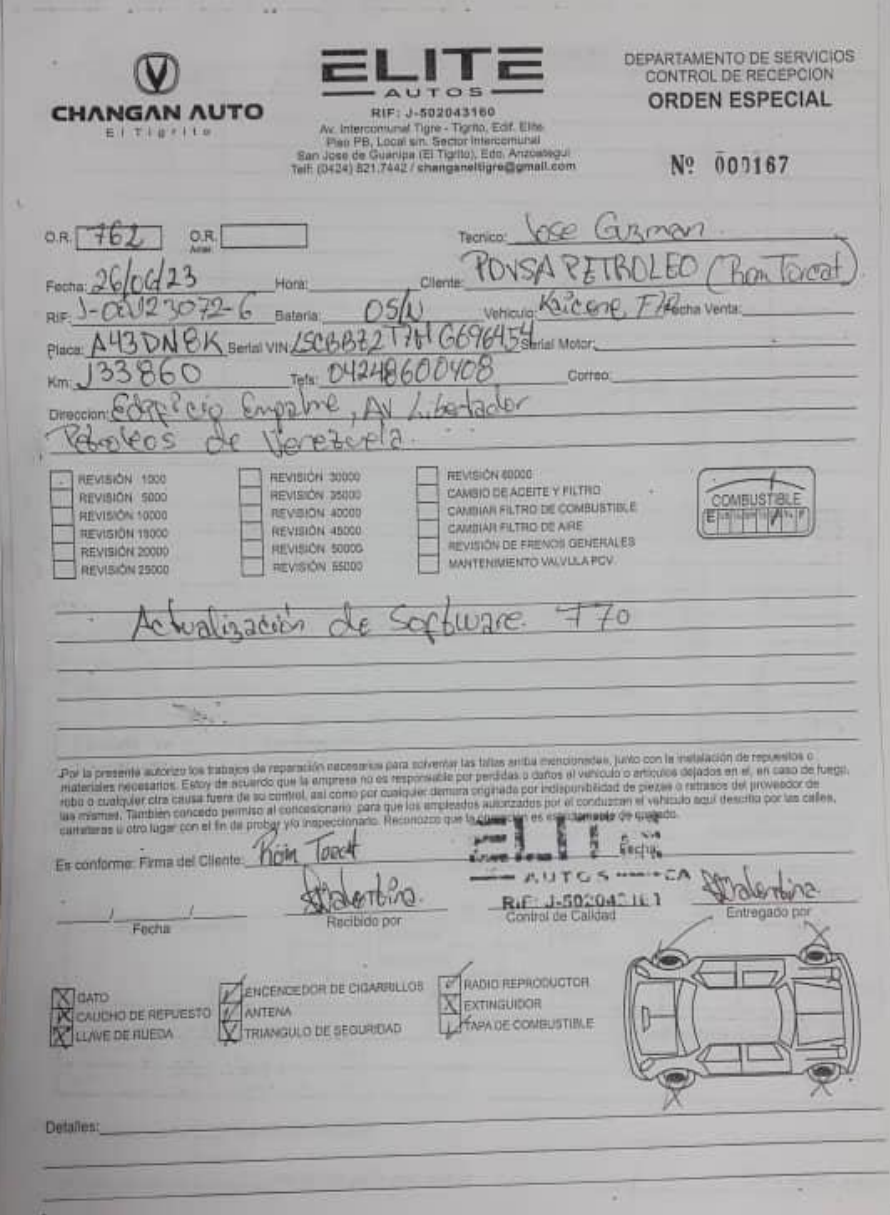 CHANGAN AUTO
El Tigrito
ELITE
AUTOS
RIF: J-502043160
Av. Intercomunal Tigre - Tigrito, Edif. Elite
Piso PB, Local s/n. Sector Intercomunal
San Jose de Guanipa (El Tigrito), Edo. Anzoategui
Telf: (0424) 821.7442 / changaneltigre@gmail.com
DEPARTAMENTO DE SERVICIOS
CONTROL DE RECEPCION
ORDEN ESPECIAL
Nº 000167
O.R. 762 O.R. Tecnico: Jose Guzman
Fecha: 26/06/23 Hora: Cliente: PDVSA PETROLEO (Ron Torcat)
RIF: Bateria: OS/N Vehiculo: Fecha Venta:
Placa: A43DN8K Serial VIN: Serial Motor:
Km: 133860 Tefs: 04248600408 Correo:
Direccion: Edificio Empalme, Av Libertador
Petroleos de Venezuela.
REVISIÓN 1000 REVISIÓN 30000 REVISIÓN 60000
REVISIÓN 5000 REVISIÓN 35000 CAMBIO DE ACEITE Y FILTRO
REVISIÓN 10000 REVISIÓN 40000 CAMBIAR FILTRO DE COMBUSTIBLE
REVISIÓN 15000 REVISIÓN 45000 CAMBIAR FILTRO DE AIRE
REVISIÓN 20000 REVISIÓN 50000 REVISIÓN DE FRENOS GENERALES
REVISIÓN 25000 REVISIÓN 55000 MANTENIMIENTO VALVULA PCV
COMBUSTIBLE
E F
Actualización de Software. T70
Por la presente autorizo los trabajos de reparación necesarios para solventar las fallas arriba mencionadas, junto con la instalación de repuestos o
materiales necesarios. Estoy de acuerdo que la empresa no es responsable por perdidas o daños al vehiculo o articulos dejados en el, en caso de fuego,
robo o cualquier otra causa fuera de su control, asi como por cualquier demora originada por indisponibilidad de piezas o retrasos del proveedor de
las mismas. También concedo permiso al concesionario para que los empleados autorizados por el conduzcan el vehiculo aquí descrito por las calles,
carreteras u otro lugar con el fin de probar y/o inspeccionarlo. Reconozco que la es de
Es conforme: Firma del Cliente: Fecha:
ELITE
AUTOS CA
RIF: J-502043161
Fecha Recibido por Control de Calidad Entregado por
Valentina. Valentina.
GATO ENCENDEDOR DE CIGARRILLOS RADIO REPRODUCTOR
CAUCHO DE REPUESTO ANTENA EXTINGUIDOR
LLAVE DE RUEDA TRIANGULO DE SEGURIDAD TAPA DE COMBUSTIBLE
Detalles: